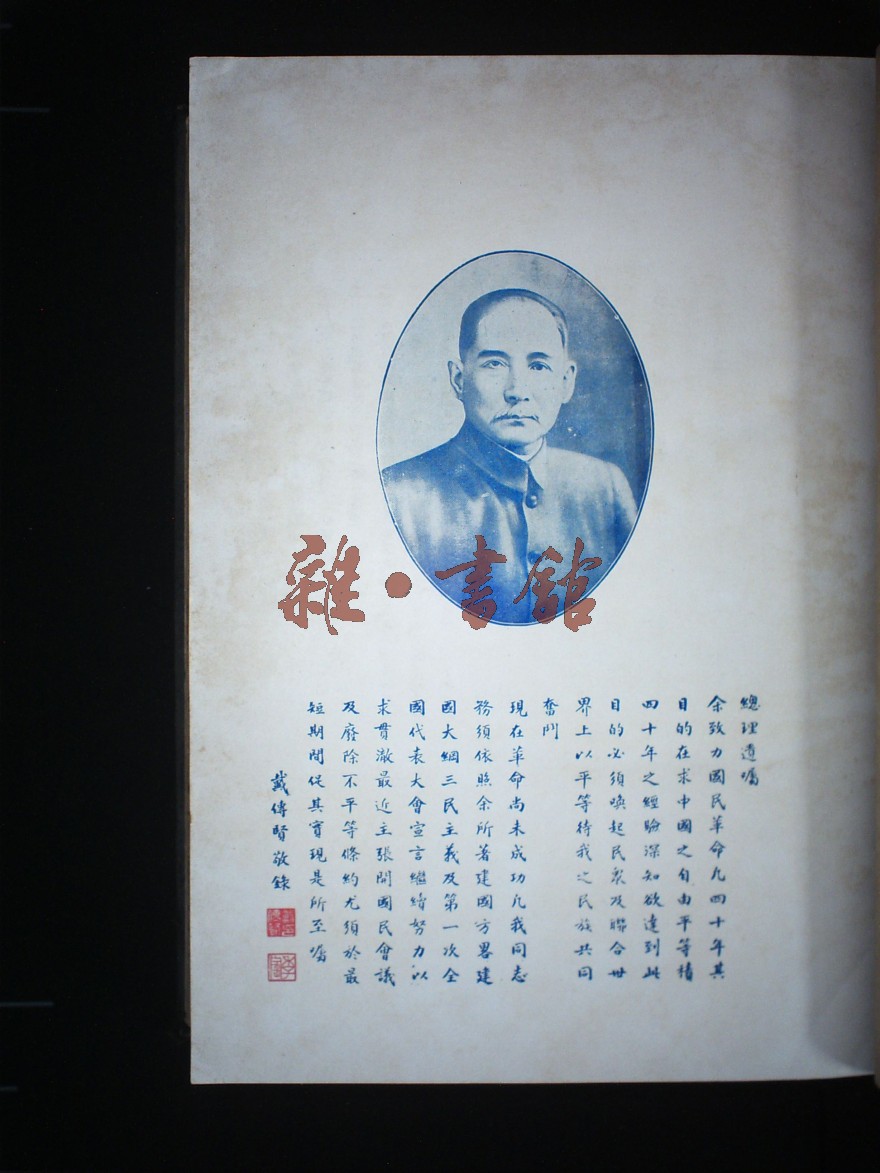 雜·書館
總理遺囑
余致力國民革命凡四十年其
目的在求中國之自由平等積
四十年之經驗深知欲達到此
目的必須喚起民眾及聯合世
界上以平等待我之民族共同
奮鬥
現在革命尚未成功凡我同志
務須依照余所著建國方畧建
國大綱三民主義及第一次全
國代表大會宣言繼續努力以
求貫澈最近主張開國民會議
及廢除不平等條約尤須於最
短期間促其實現是所至囑
戴傳賢敬錄